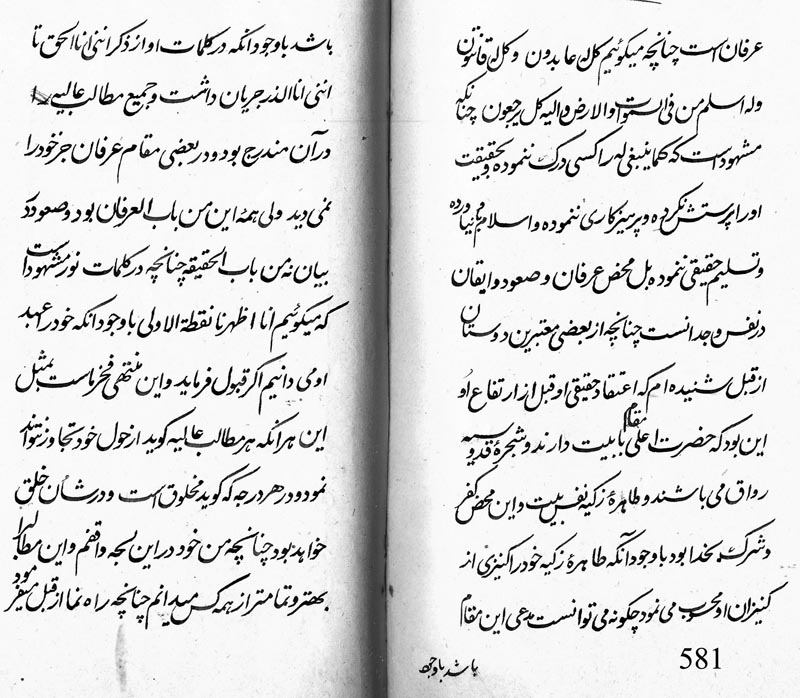 عرفان است چنانچه میکوئیم کل له عابدون و کل له قانتون
وله اسلم من فی السموات والارض والیه کل یرجعون چنانکه
مشهود است که کلما ینبغی له را کسی درک ننموده و بحقیقت
اورا پرستش نکرده و پرهیزکاری ننموده و اسلام نیاورده
و تسلیم حقیقی ننموده بل محض عرفان و صعود و ایقان
در نفس وجد انست چنانچه از بعضی معتبرین دوستان
از قبل شنیده ام که اعتقاد حقیقی او قبل از ارتفاع او
این بود که حضرت اعلی مقام بابیت دارند و شجرهٔ قدوسیه
رواق می باشند و طاهرهٔ زکیه نفس بیت و این محض کفر
و شرک بخدا بود باوجود آنکه طاهرهٔ زکیه خود را کنیزی از
کنیزان او محسوب می نمود چکونه می توانست مدعی این مقام
باشد باوجود
581
باشد باوجود انکه در کلمات او از ذکر اننی انا الحق تا
اننی انا الذر جریان داشت و جمیع مطالب عالیه
در آن مندرج بود و در بعضی مقام عرفان جز خود را
نمی دید ولی همهٔ این من باب العرفان بود و صعود در
بیان نه من باب الحقیقه چنانچه در کلمات نور مشهود است
که میکوئیم انا اظهرنا نقطة الاولی باوجود انکه خود را عبد
او می دانیم اکر قبول فرماید و این منتهی فخر ماست بمثل
این هر انکه هر مطالب عالیه کوید از حول خود تجاوز نتواند
نمود و در هر درجه که کوید مخلوق است و در شأن خلق
خواهد بود چنانچه من خود در این لجه واقفم و این مطالب را
بهتر و تمامتر از همه کس میدانم چنانچه راه نما از قبل میفرمود